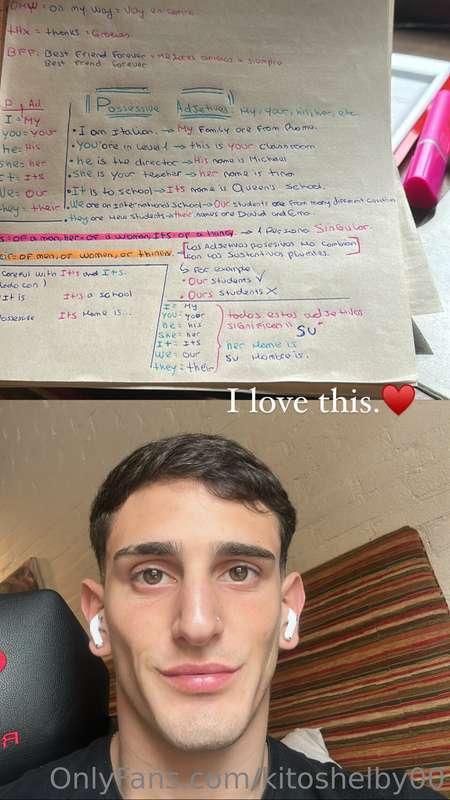 OMW = on my way = Voy en camino
thx = thanks = Gracias
BFF: Best Friend Forever = Mejores amigos x siempre
Best Friend Forever
P. Ad
"Possessive Adjetives" My, your, his, her, etc
I = My
• I am Italian. → My Family are From Roma.
you = your
• you're in Level 1 → this is your classroom
he = His
• he is the director → His name is Michael
She = her
• She is your teacher → her name is Tina
It = Its
• It is to school → Its name is Queen's School.
We = Our
• We are an International school → Our students are from many different countries
they = their
• they are New students → their names are David and Emo.
s: of a man, her: of a woman, Its: of a thing → 1 Persona Singular.
eir: of men, or women, or things
Los Adjetivos posesivos No cambian
con los sustantivos plurales.
Careful with It's and Its.
↳ For example
• Our students ✓
• Ours students X
It is It's a school
Possessive Its Name is...
I = My
you = your
he = his
she = her
It = Its
we = our
they = their
todos estos adjetivos
significan "SU"
her Name is
Su Nombre is.
I love this.❤️
OnlyFans.com/kitoshelby00